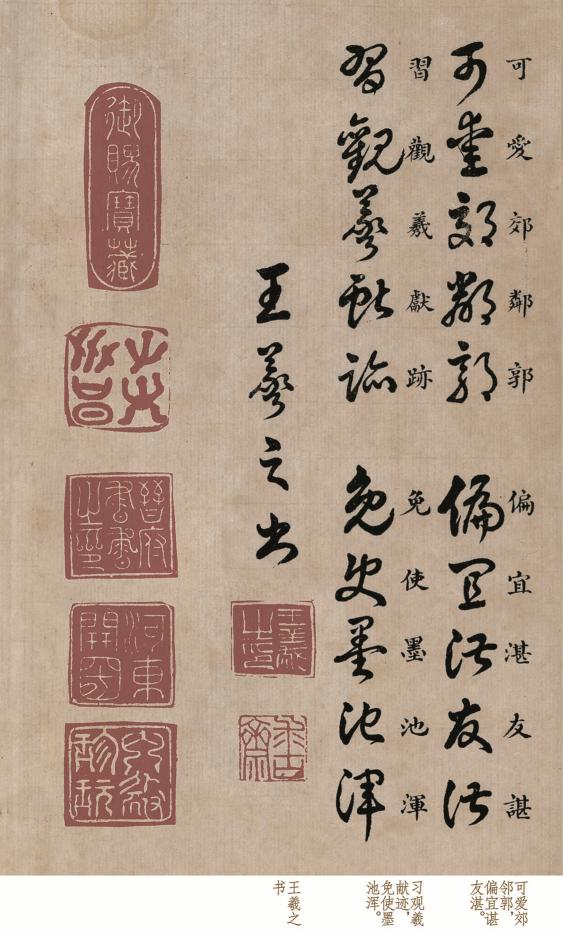 可愛郊鄰郭 偏宜湛友諶
可愛郊鄰郭 偏宜湛友諶
習觀羲獻跡 免使墨池渾
習觀羲獻跡 免使墨池渾
王羲之書
御賜寶藏
可爱郊
邻郭，
偏宜谌
友湛。
习观羲
献迹，
免使墨
池浑。
王羲之
书